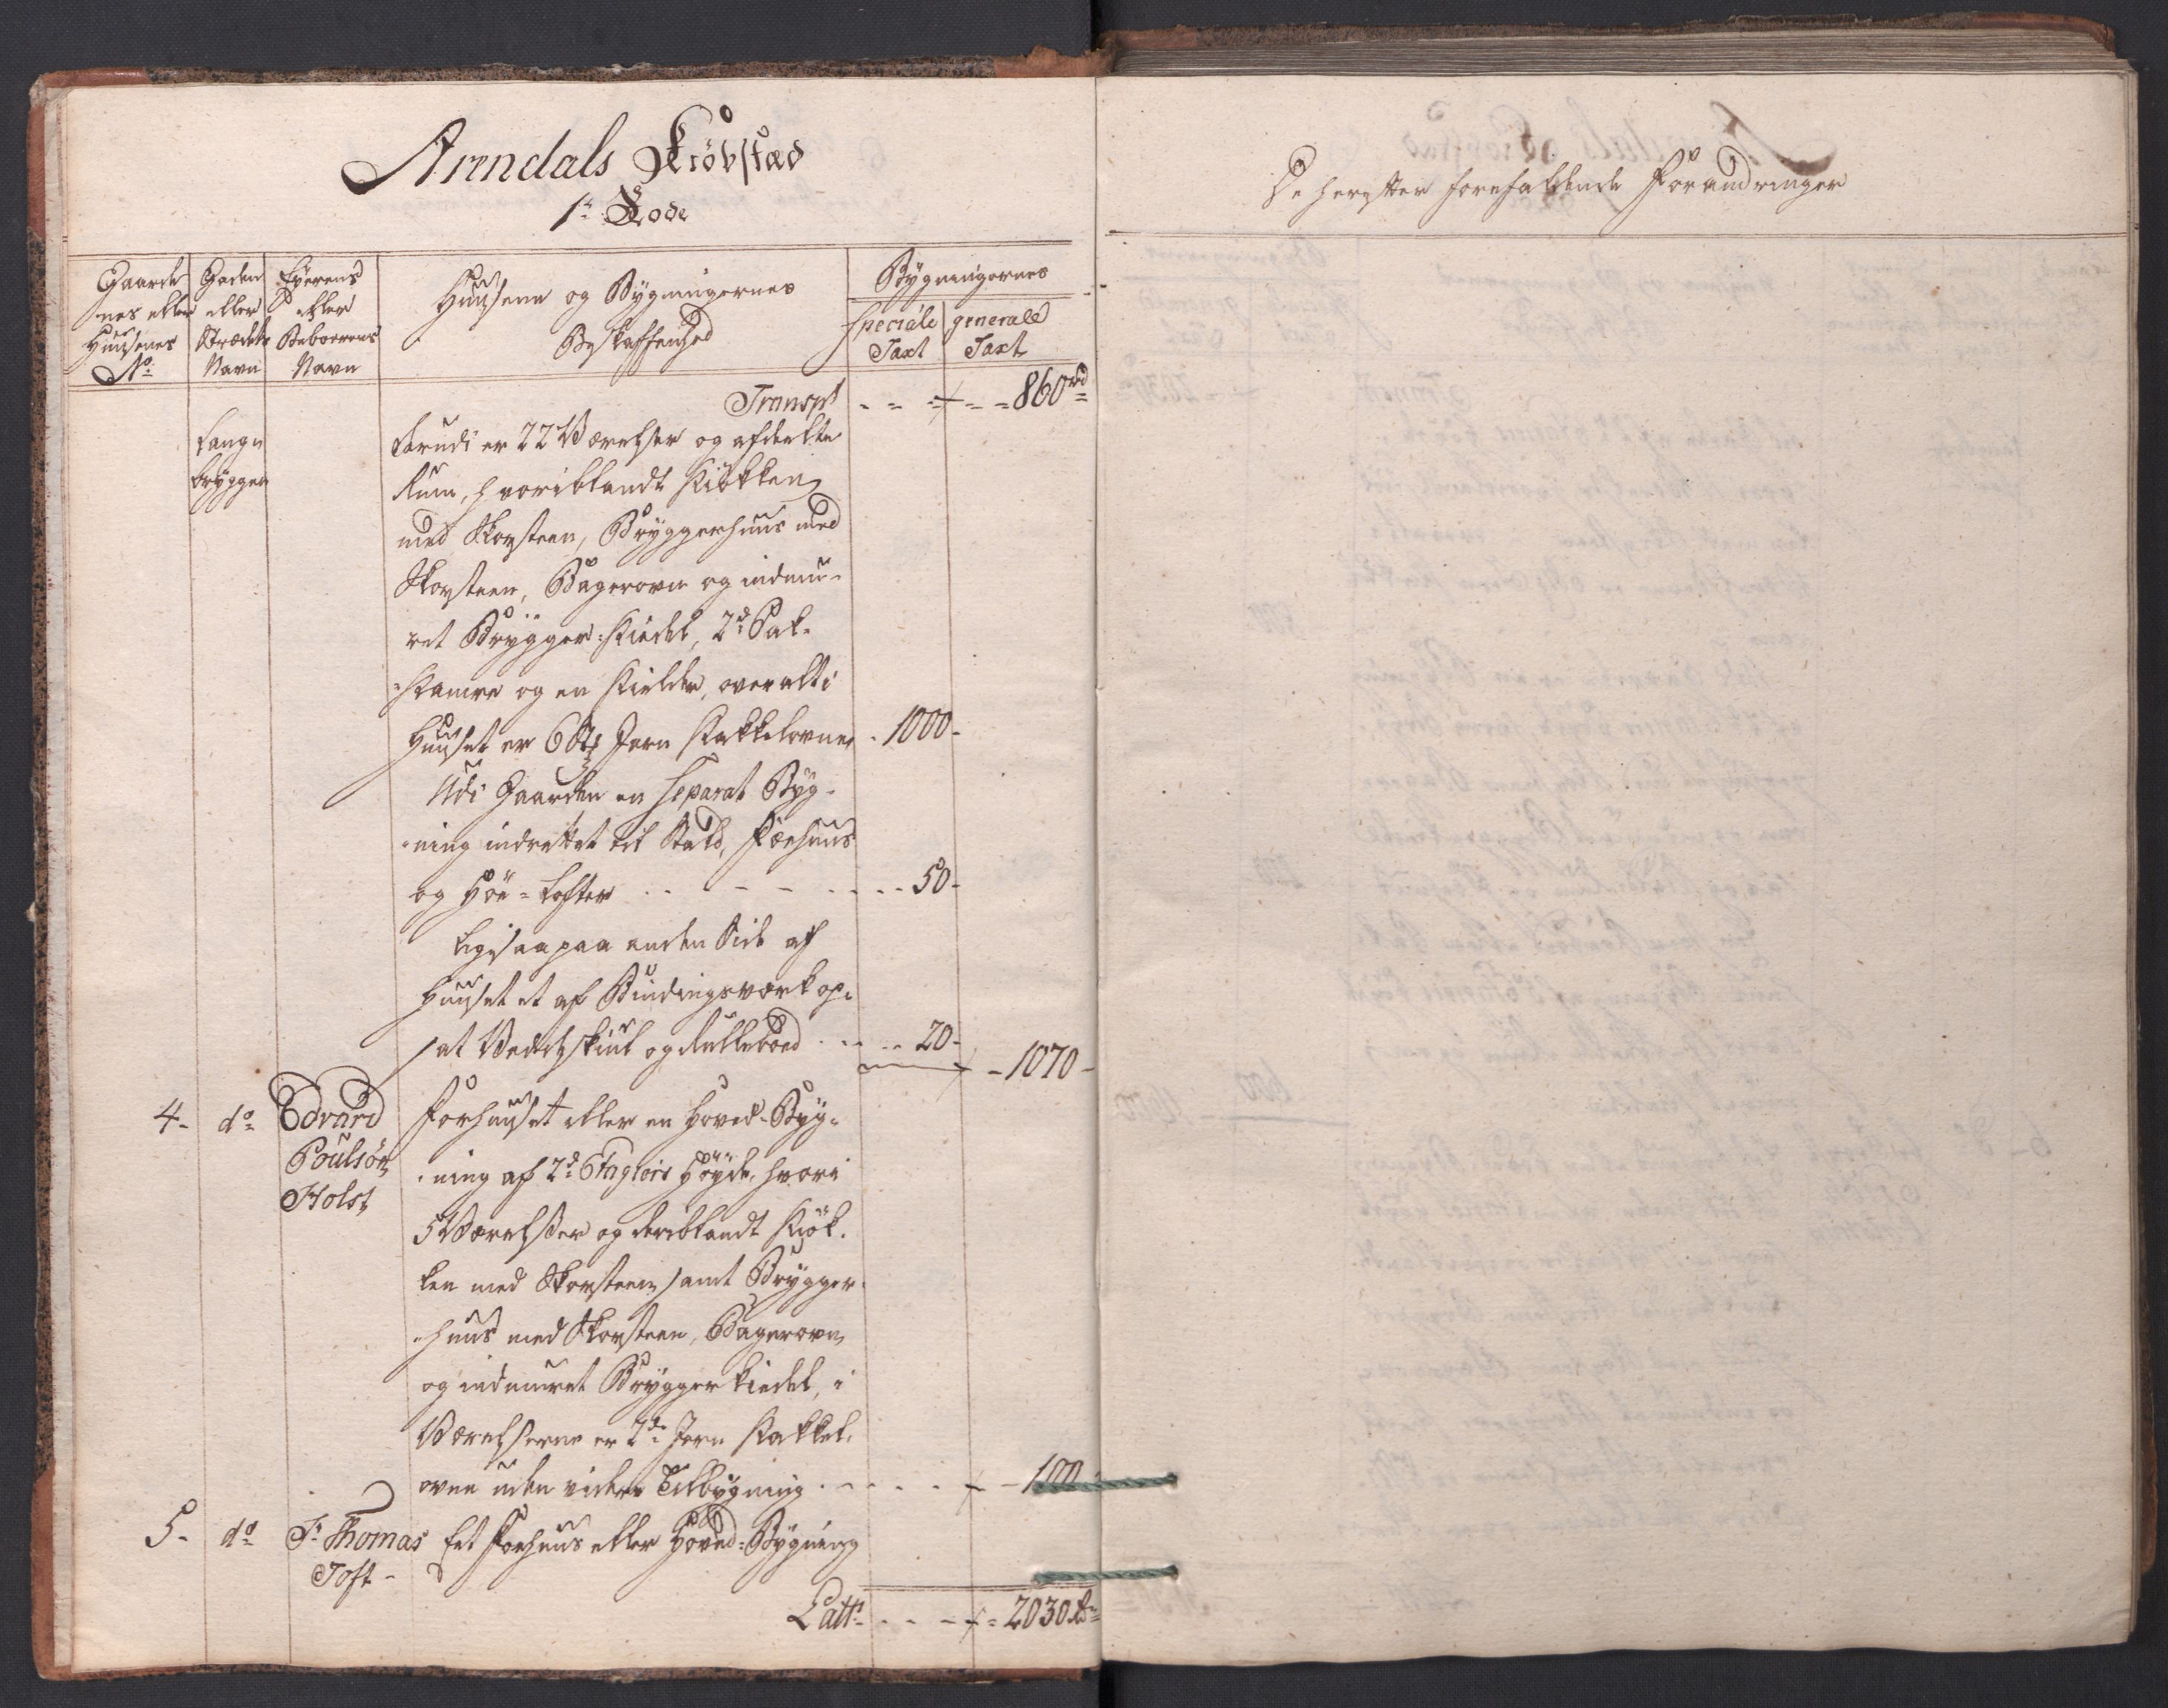 Arendals Kiöbstæd
1te Rode
Gaarde
nes eller
Huusenes
No
Gaden
eller
Strædets
Navn
Eyerens
eller
Beboerens
Navn
Huusene og Bygningernes
Beskaffenhed
Bygningernes
speciale
Taxt
generale
Taxt
Transpt - - - 860 rd
Lange
bryggen
Herudi er 22 Værelser og afdeelte
Rum, hvoriblandt Kiökken
med Skorsteen, Bryggerhuus med
Skorsteen, Bagerovn og indmu-
ret Brygger-Kiedel, 2de Pak-
-Kamre og en Kielder, overalt i
Huuset er 6 St Jern Kakkelovner - 1000 -
Udi Gaarden en separat Byg-
-ning indrettet til Stald, Fæehuus
og Höe-Lofter - - - 50 -
Ligesaa paa anden Side af
Huuset et af Bindingsværk op-
sat Vedskiul og Rullebod - - - 20 - - 1070 -
4 - do Edvard
Poulsön
Holst
Forhuuset eller en Hoved-Byg-
-ning af 2de Etagiers Höyde, hvori
5 Værelsser og deriblandt Kiök-
ken med Skorsteen samt Brygger-
-huus med Skorsteen, Bagerovn
og indmuret Bryggerkiedel, i
Værelserne er 2de Jern Kakkel-
ovne uden videre Tilbygning - - - 100
5 - do Sr Thomas
Toft -
Eet Forhuus eller Hoved-Bygning
Latt - - - 2030 rd
De herefter forefaldende Forandringer